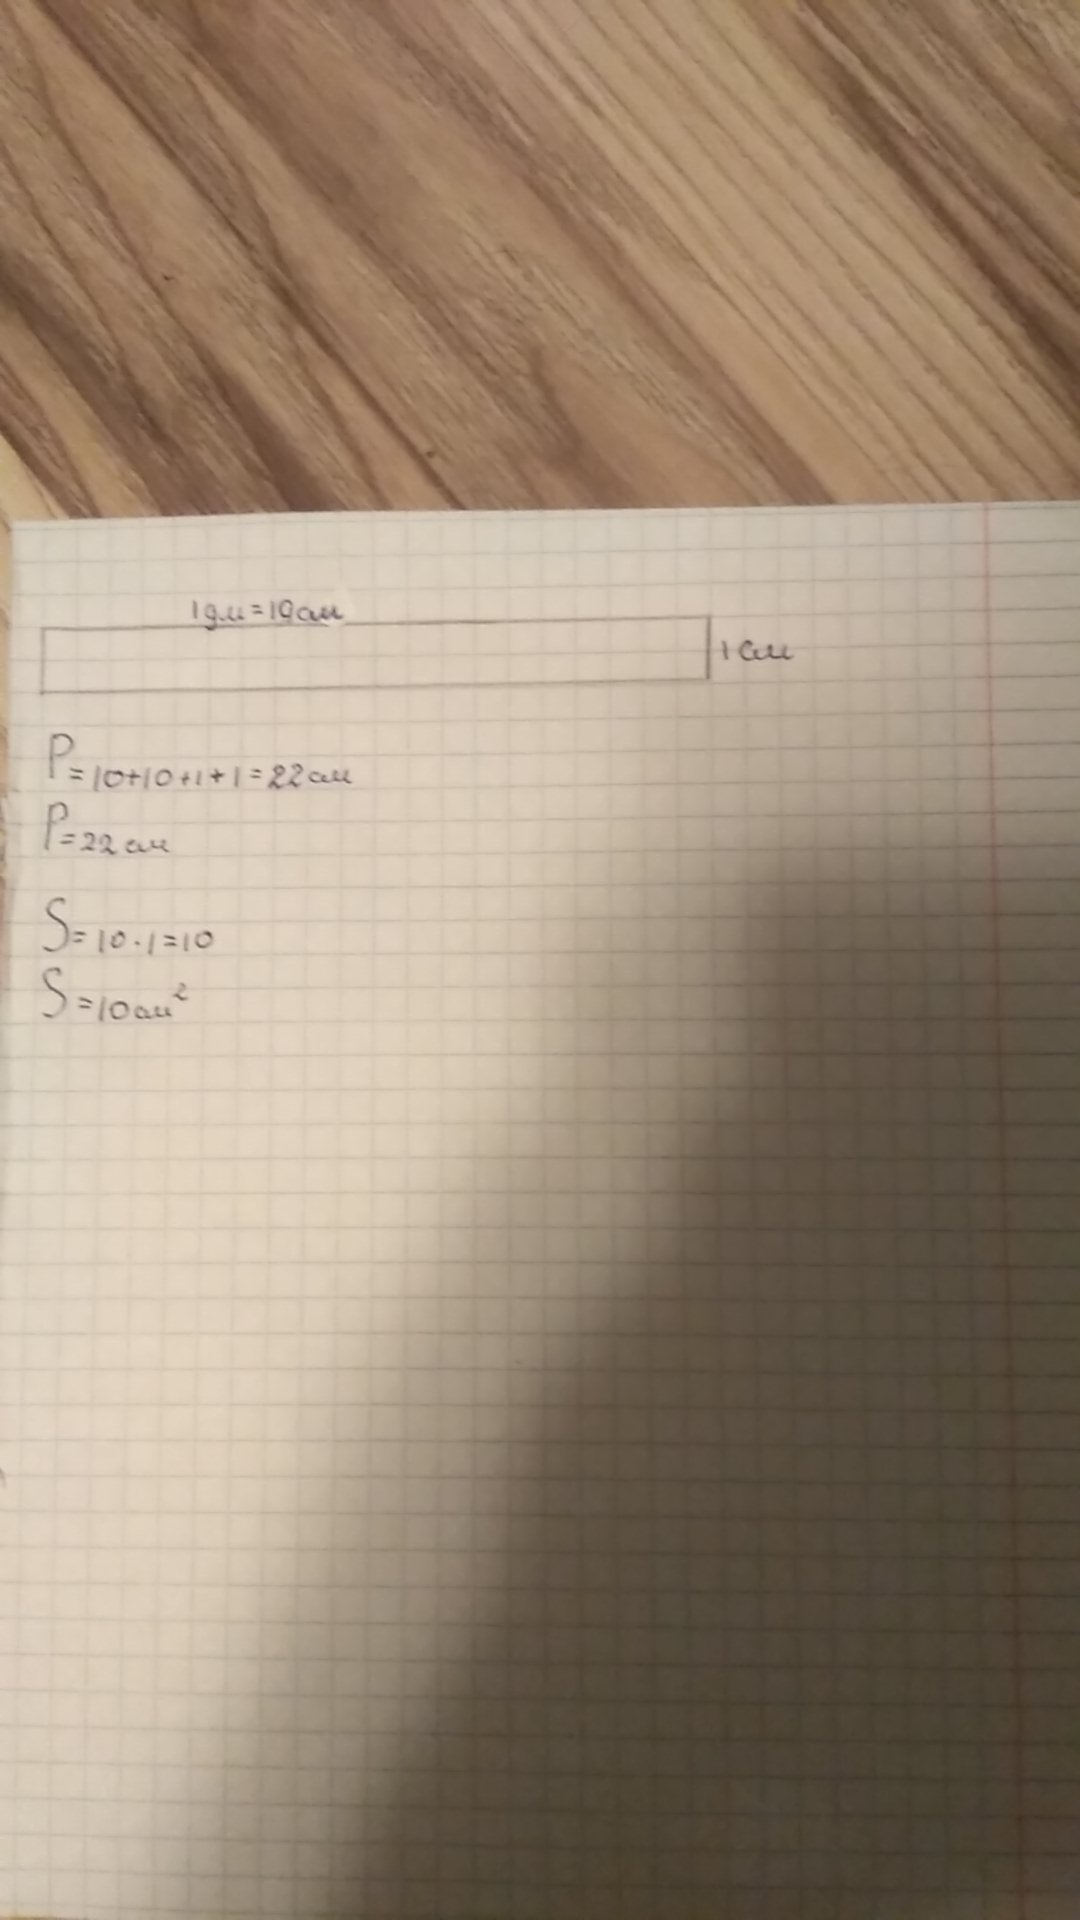 1дм=10см
1см
P=10+10+1+1=22см
P=22см
S=10·1=10
S=10см²